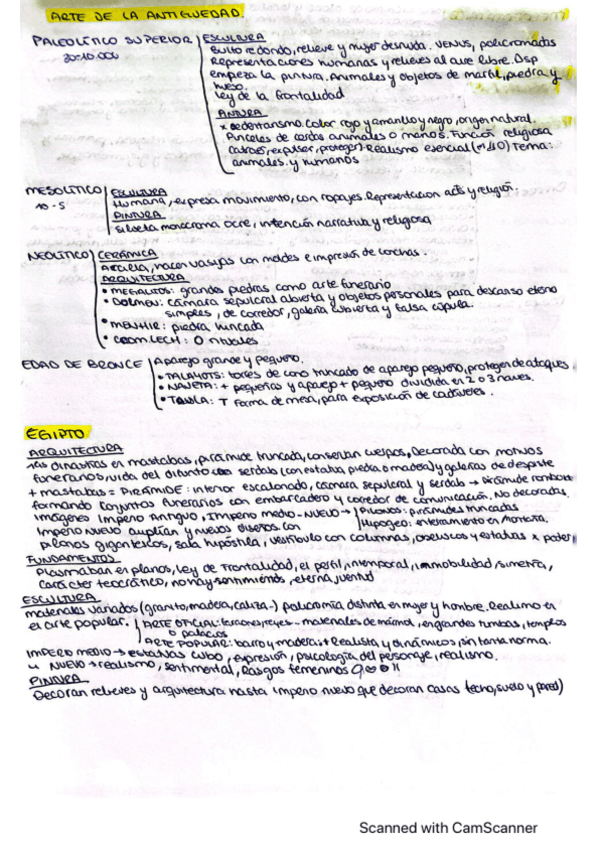 ARTE DE LA ANTIGÜEDAD.
PALEOLÍTICO SUPERIOR
30-10.000
ESCULTURA
Bulto redondo, relieve y mujer desnuda. VENUS, policromadas
Representaciones humanas y relieves al aire libre. Dsp
empieza la PINTURA. Animales y objetos de marfil, piedra y
hueso.
Ley de la frontalidad
PINTURA
x sedentarismo. Color rojo y amarillo y negro, origen natural.
Pinceles de cerdas animales o manos. Función religiosa
(adorar, expulsar, proteger) Realismo esencial Tema:
animales y humanos
MESOLÍTICO
10-5
ESCULTURA
Humana, expresa movimiento, con ropajes. Representación acts y religión.
PINTURA
Silueta monocroma ocre, intención narrativa y religiosa
NEOLÍTICO
CERÁMICA
Arcilla, hacen vasijas con moldes e impresión de conchas.
ARQUITECTURA
• MEGALITOS: grandes piedras como arte funerario
• DOLMEN: cámara sepulcral abierta y objetos personales para descanso eterno
simples, de corredor, galería cubierta y falsa cúpula.
• MENHIR: piedra hincada
• CROMLECH: O
EDAD DE BRONCE
Aparejo grande y pequeño.
• TALAYOTS: torres de cono truncado de aparejo pequeño, protegen de ataques
• NAVETA: + pequeñas y aparejo + pequeño dividida en 2 o 3 naves.
• TAULA: T forma de mesa, para exposición de cadáveres.
EGIPTO
ARQUITECTURA
1as dinastías en mastabas, pirámide truncada, conservan cuerpos, Decorada con motivos
funerarios, vida del difunto serdab (con estatua, piedra o madera) y galerías de despiste
+ mastabas = PIRÁMIDE: interior escalonado, cámara sepulcral y serdab → pirámide romboidal
formando conjuntos funerarios con embarcadero y corredor de comunicación. No decoradas.
imágenes Imperio Antiguo, Imperio medio-NUEVO → Pilonos: pirámides truncadas
Imperio NUEVO amplían y nuevos diseños con Hipogeo: enterramiento en montaña.
pilonos gigantescos, sala hipóstila, vestíbulo con columnas, obeliscos y estatuas x poder
FUNDAMENTOS
Plasmaban en planos, ley de frontalidad, el perfil, intemporal, inmobilidad, simetría,
carácter teocrático, no hay sentimiento, eterna juventud
ESCULTURA
materiales variados (granito, madera, caliza-) policromía distinta en mujer y hombre. Realismo en
el arte popular. ARTE OFICIAL: faraones, reyes - materiales de mármol, en grandes tumbas, templos
o palacios
ARTE POPULAR: barro y madera: + Realista y dinámicos, sin tanta norma.
IMPERIO MEDIO → estatuas cubo, expresión, psicología del personaje, realismo.
u NUEVO → realismo, sentimental, Rasgos femeninos
PINTURA
Decoran relieves y arquitectura hasta imperio nuevo que decoran casas (techo, suelo y pared)
Scanned with CamScanner